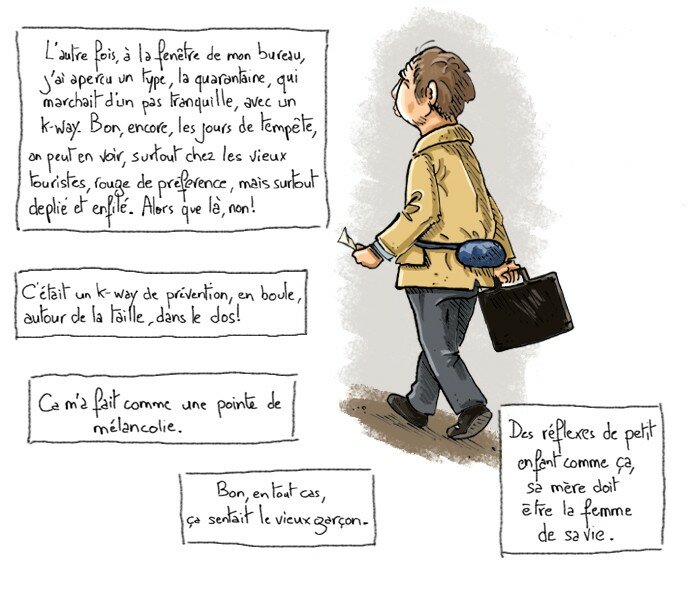 L'autre fois, à la fenêtre de mon bureau,
j'ai aperçu un type, la quarantaine, qui
marchait d'un pas tranquille, avec un
k-way. Bon, encore, les jours de tempête,
on peut en voir, surtout chez les vieux
touristes, rouge de préférence, mais surtout
deplié et enfilé. Alors que là, non!
C'était un k-way de prévention, en boule,
autour de la taille, dans le dos!
Ca m'a fait comme une pointe de
mélancolie.
Bon, en tout cas,
ça sentait le vieux garçon.
Des réflexes de petit
enfant comme ça,
sa mère doit
être la femme
de sa vie.